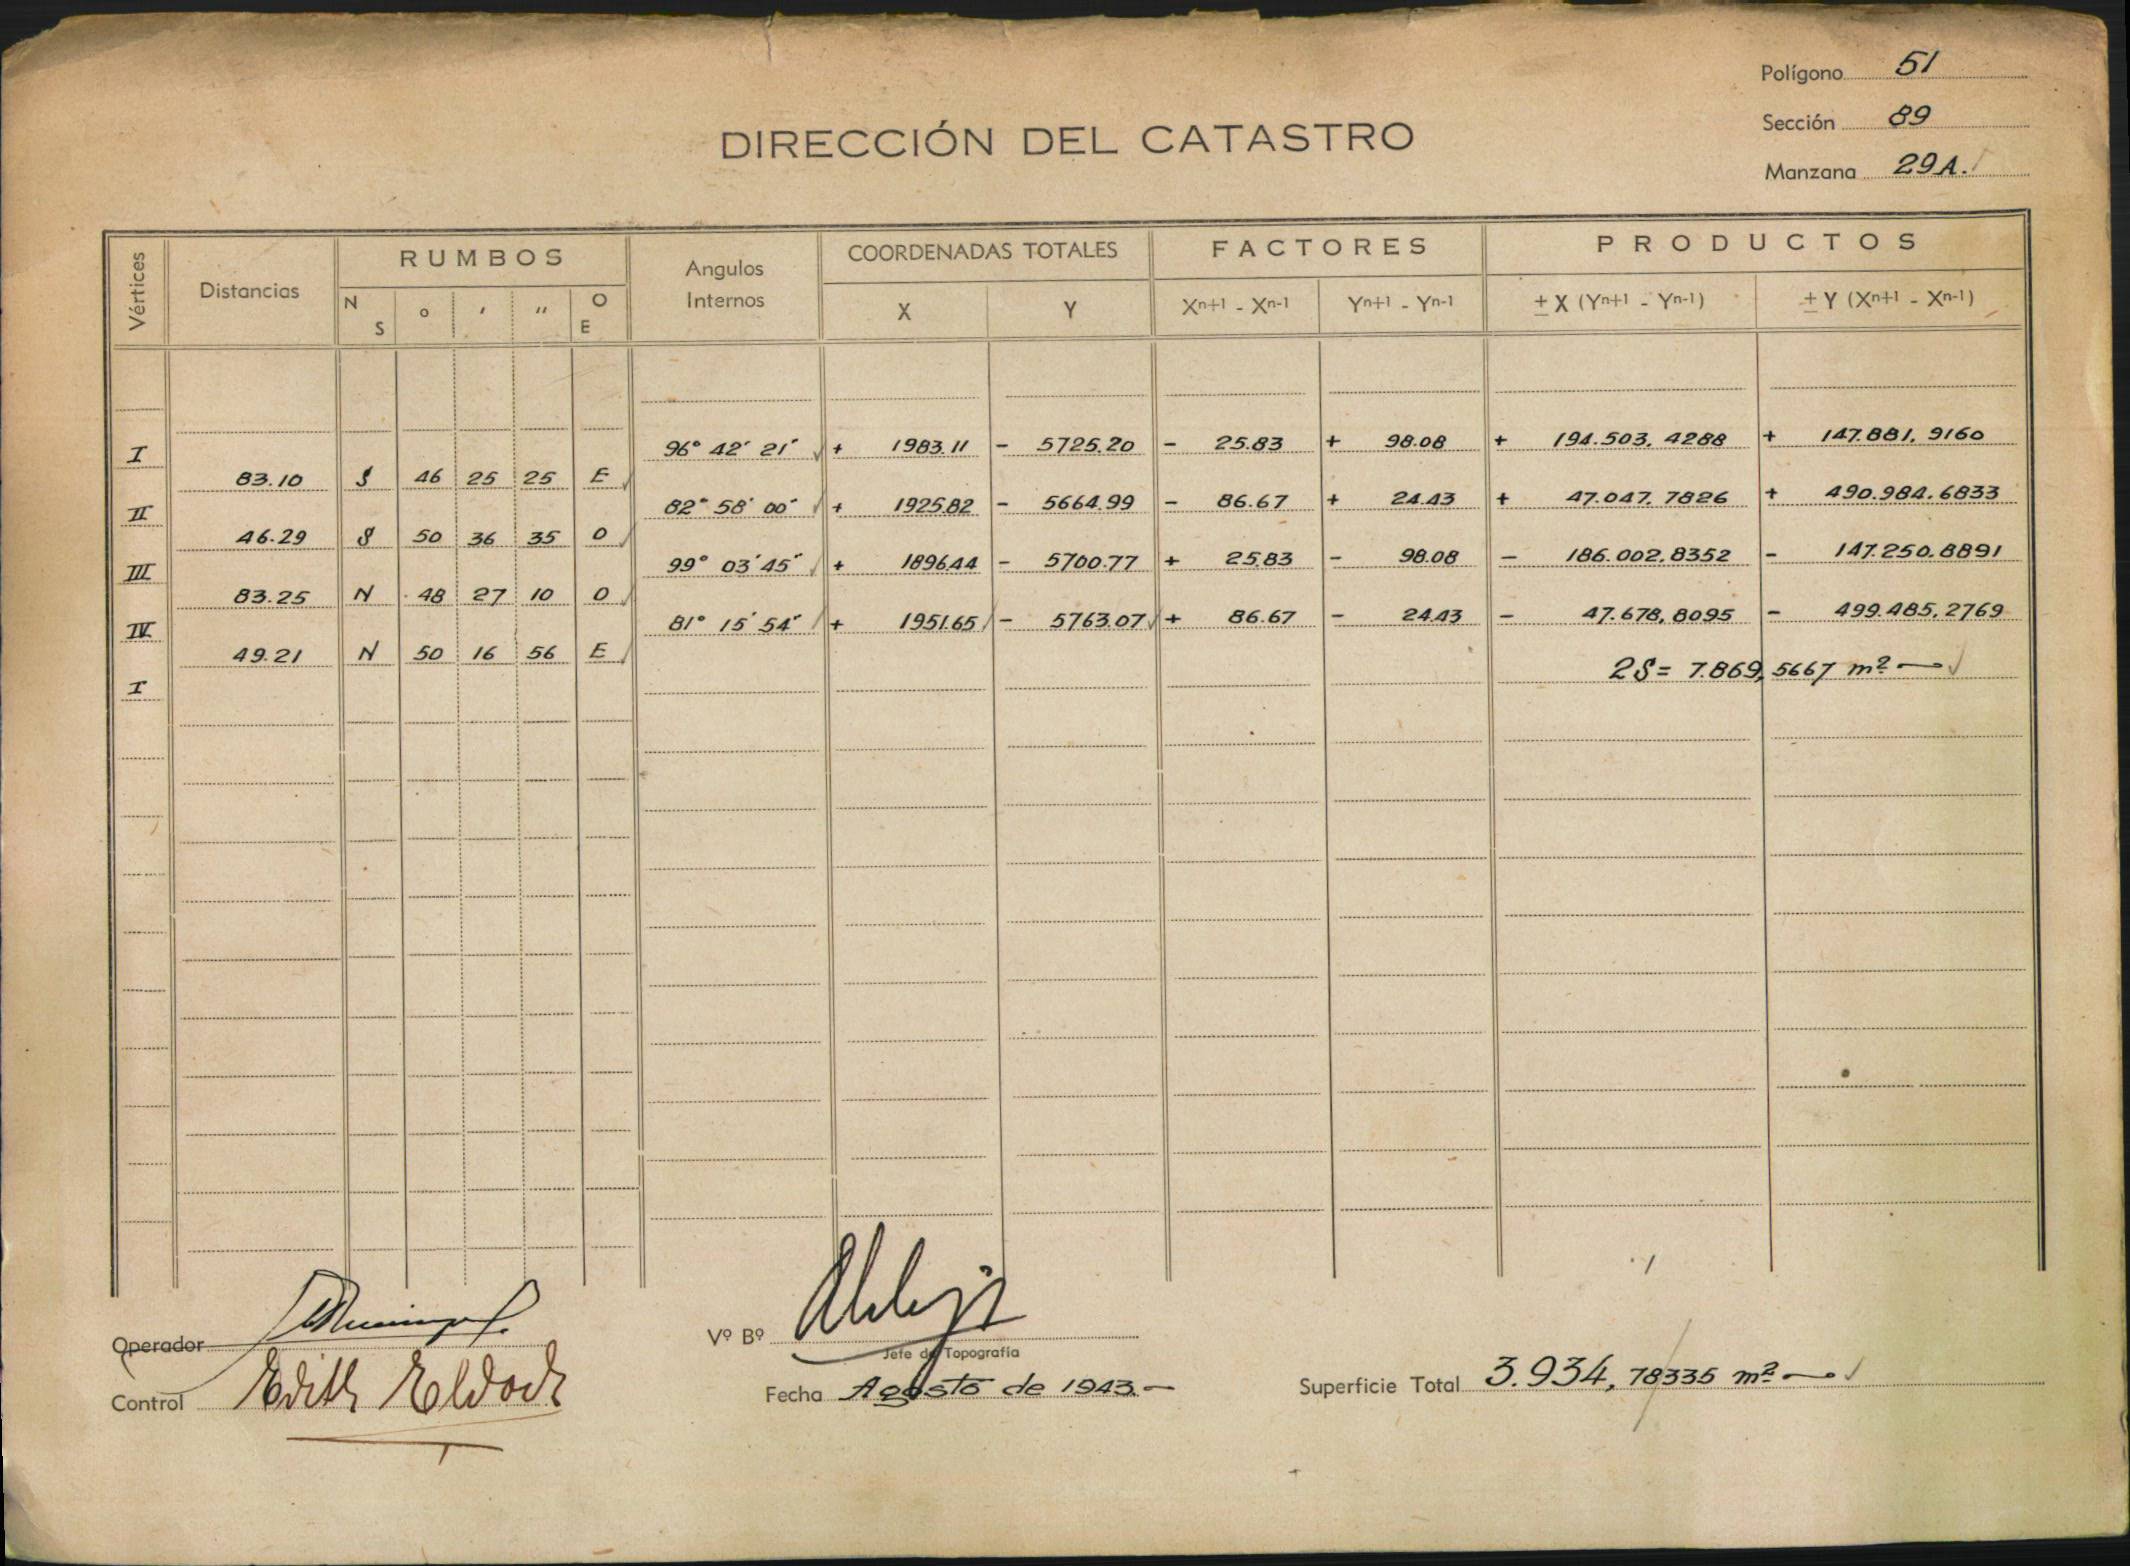 Polígono 51
Sección 89
Manzana 29A.
DIRECCIÓN DEL CATASTRO
Vértices Distancias RUMBOS Angulos Internos COORDENADAS TOTALES FACTORES PRODUCTOS
N S o ' " O E X Y Xn+1 - Xn-1 Yn+1 - Yn-1 ± X (Yn+1 - Yn-1) ± Y (Xn+1 - Xn-1)
I 96° 42' 21" + 1983.11 - 5725.20 - 25.83 + 98.08 + 194.503,4288 + 147.881,9160
83.10 S 46 25 25 E
II 82° 58' 00" + 1925.82 - 5664.99 - 86.67 + 24.43 + 47.047,7826 + 490.984.6833
46.29 S 50 36 35 O
III 99° 03' 45" + 1896.44 - 5700.77 + 25.83 - 98.08 - 186.002,8352 - 147.250.8891
83.25 N 48 27 10 O
IV 81° 15' 54" + 1951.65 - 5763.07 + 86.67 - 24.43 - 47.678,8095 - 499.485,2769
49.21 N 50 16 56 E
2S = 7.869,5667 m²
I
Operador
Vº Bº
Jefe de Topografía
Control Edith
Fecha Agosto de 1943.-
Superficie Total 3.934,78335 m²